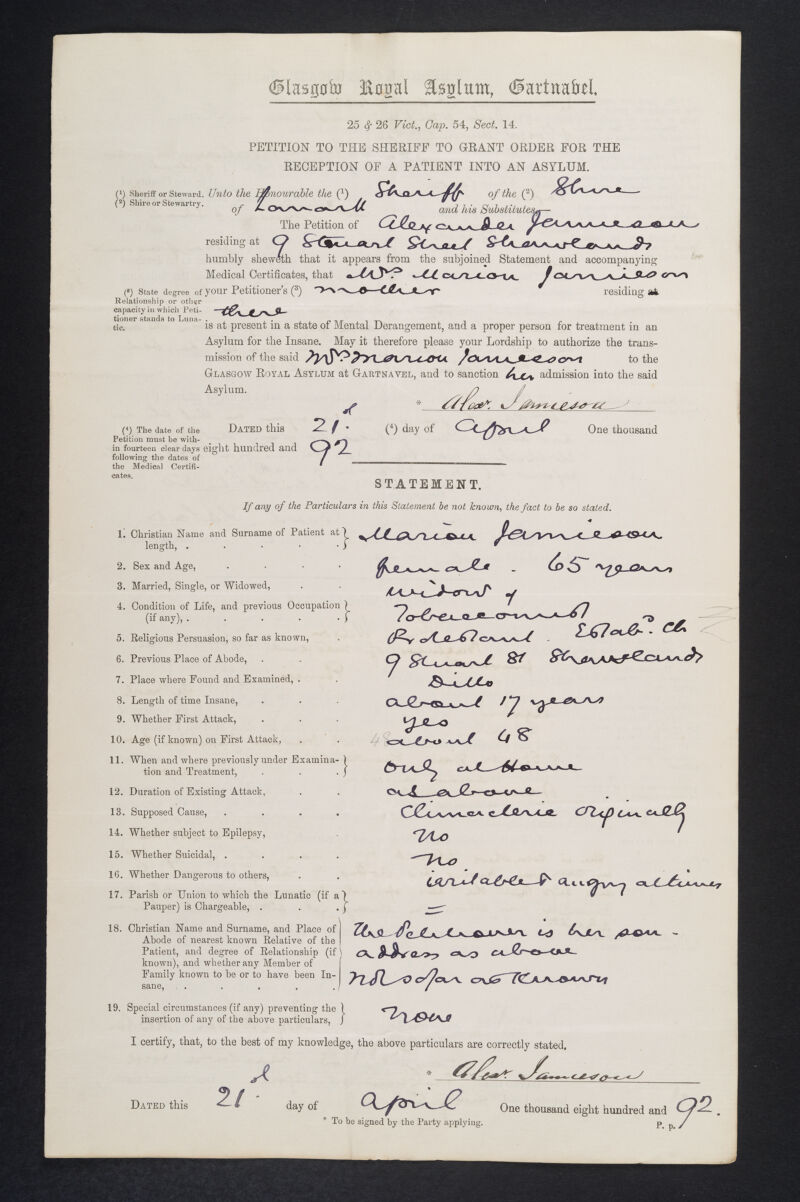 Glasgow Royal Asylum, Gartnavel.
25 & 26 Vict., Cap. 54, Sect. 14.
PETITION TO THE SHERIFF TO GRANT ORDER FOR THE
RECEPTION OF A PATIENT INTO AN ASYLUM.
(¹) Sheriff or Steward. Unto the Honourable the (¹) Sheriff of the (²) Shire
(²) Shire or Stewartry. of Lanark and his Substitutes
The Petition of Alexander Jamieson
residing at 9 Stuart Street Shawlands
humbly sheweth that it appears from the subjoined Statement and accompanying
Medical Certificates, that Mrs. Marion Jamieson
(³) State degree of Relationship or other capacity in which Petitioner stands to Lunatic. your Petitioner's (³) mother residing at
there
is at present in a state of Mental Derangement, and a proper person for treatment in an
Asylum for the Insane. May it therefore please your Lordship to authorize the trans-
mission of the said Mrs. Marion Jamieson to the
GLASGOW ROYAL ASYLUM AT GARTNAVEL, and to sanction her admission into the said
Asylum.
* Alexr. Jamieson
(⁴) The date of the Petition must be within fourteen clear days following the dates of the Medical Certificates. DATED this 21.d (⁴) day of April One thousand
eight hundred and 92
STATEMENT.
If any of the Particulars in this Statement be not known, the fact to be so stated.
1. Christian Name and Surname of Patient at length, . . . . . Marion Jamieson
2. Sex and Age, . . . . female . 65 years
3. Married, Single, or Widowed, . . widow of
4. Condition of Life, and previous Occupation (if any), . . . . . Tobacconist
5. Religious Persuasion, so far as known, . Protestant. Estabd. Ch
6. Previous Place of Abode, . . . 9 Stuart St Shawlands
7. Place where Found and Examined, . . Ditto
8. Length of time Insane, . . . about 17 years
9. Whether First Attack, . . . yes
10. Age (if known) on First Attack, . . 48 about 48
11. When and where previously under Examination and Treatment, . . . Only at Home
12. Duration of Existing Attack, . . as above
13. Supposed Cause, . . . . Climacteric originally
14. Whether subject to Epilepsy, . No
15. Whether Suicidal, . . . . No
16. Whether Dangerous to others, . . irritable & angry at times
17. Parish or Union to which the Lunatic (if a Pauper) is Chargeable, . . . . =
18. Christian Name and Surname, and Place of Abode of nearest known Relative of the Patient, and degree of Relationship (if known), and whether any Member of Family known to be or to have been Insane, . . . . . The Petitioner is her son -
address as above
Not so far as known
19. Special circumstances (if any) preventing the insertion of any of the above particulars, None
I certify, that, to the best of my knowledge, the above particulars are correctly stated.
* Alexr. Jamieson
DATED this 21.d day of April One thousand eight hundred and 92.
* To be signed by the Party applying.
P. p.